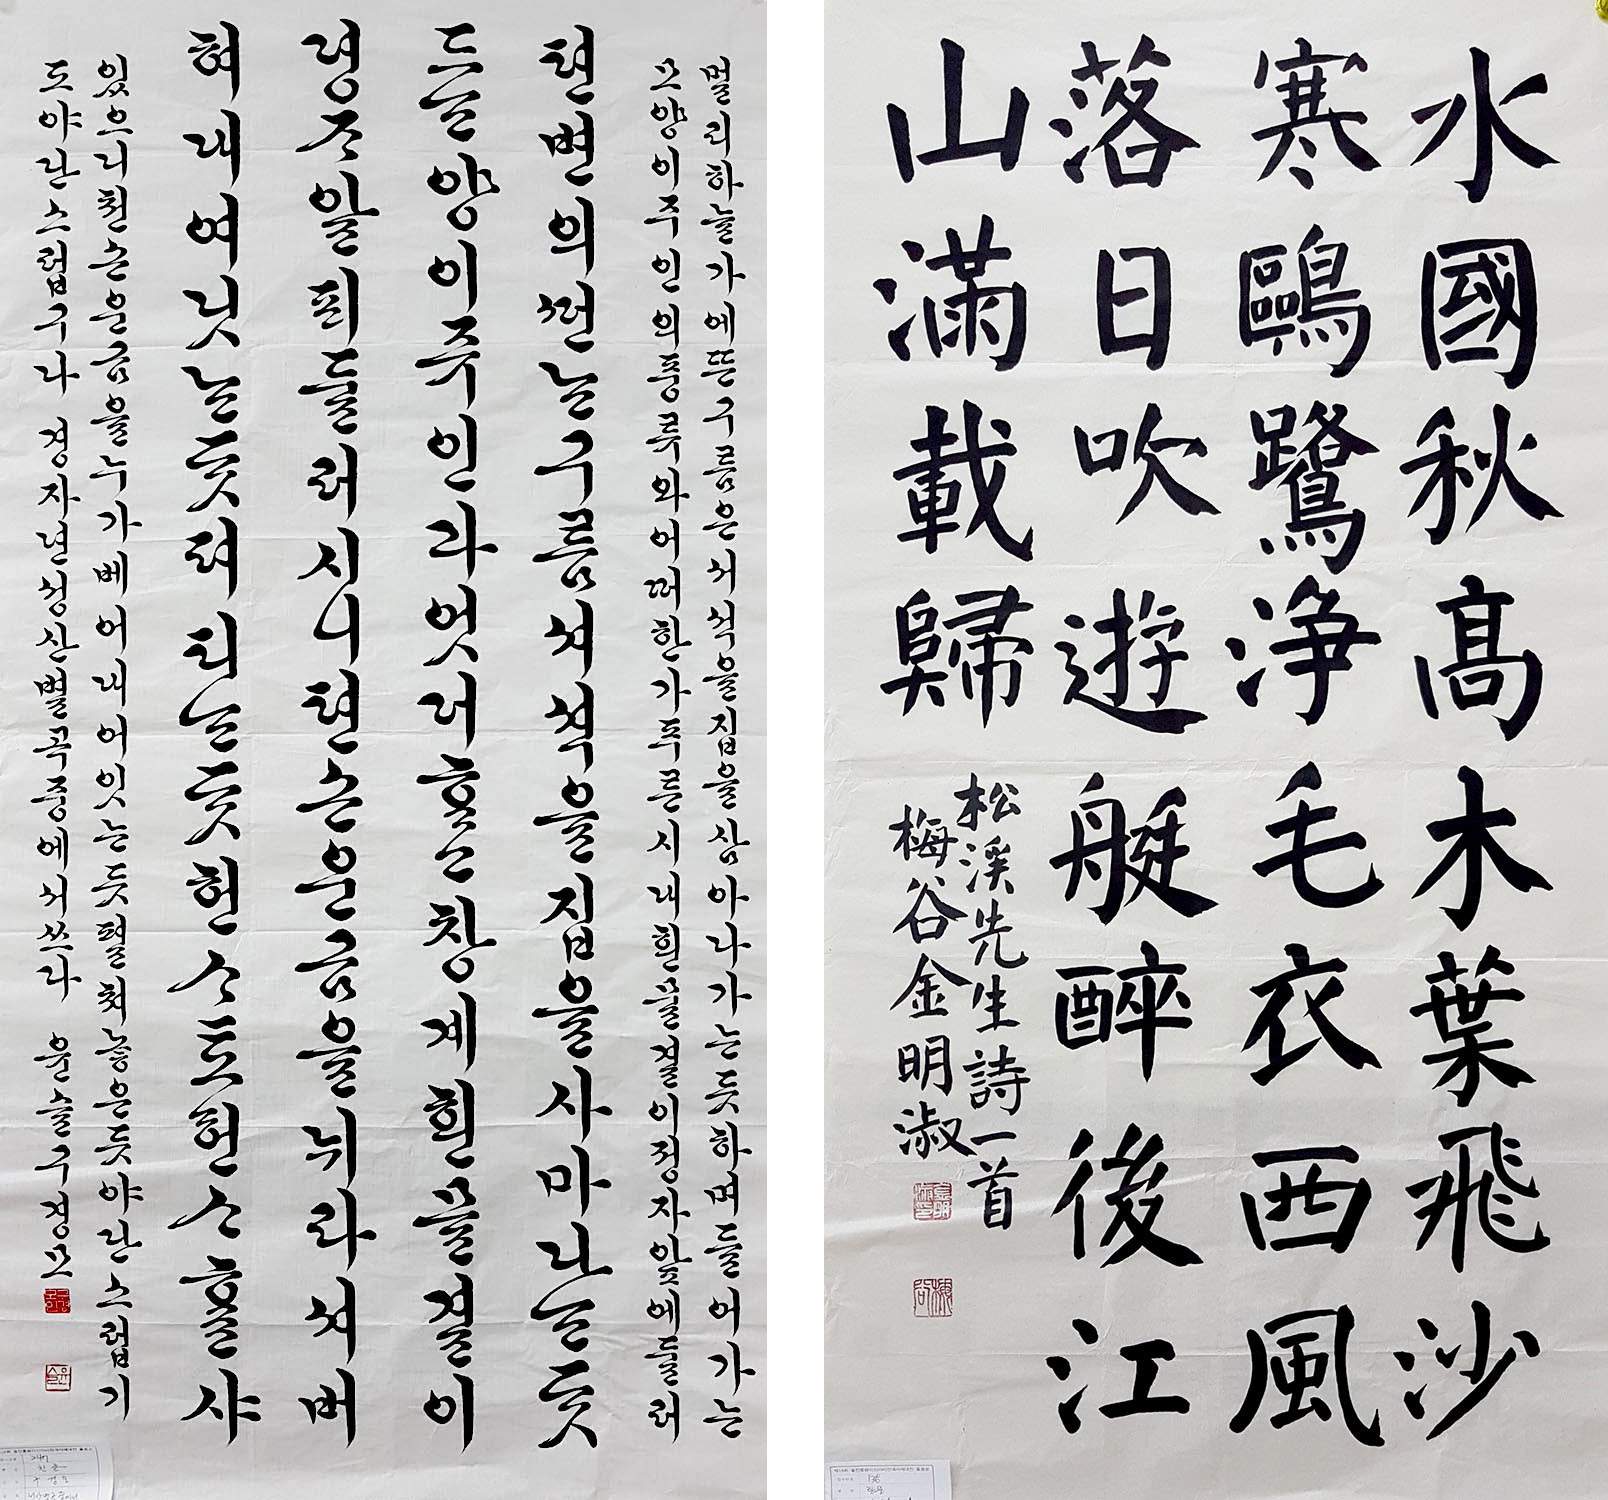 멀리하늘가에뜬구름은서석을집을삼아나가는듯하며들어가는
모양이주인의풍류와어떠한가푸른시내흰물결이정자앞에둘러
텬변의ᄯᅥᆫ는구름셔셕을집을사마나는듯
드는양이쥬인과엇더흔창계흰믈결이
뎡즈알픠둘러시니텬손운금을뉘라셔버
혀내여닛는듯펴티는듯헌스토헌스흘샤
있으니천손운금을누가베어내어잇는듯펼쳐놓은듯야단스럽기
도야단스럽구나 경자년성산별곡중에서쓰다 윤슬구경모
水國秋高木葉飛沙
寒鷗鷺浄毛衣西風
落日吹遊艇醉後江
山滿載歸
松溪先生詩一首
梅谷金明淑